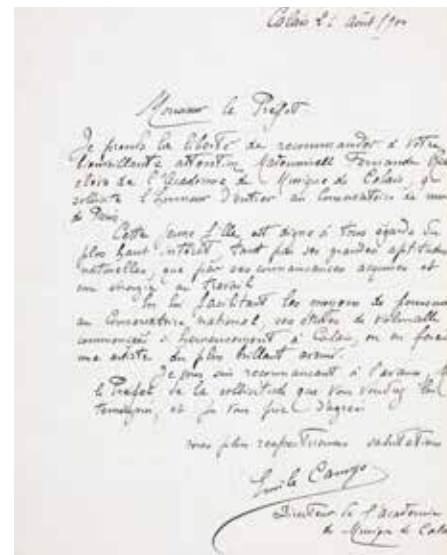 Calais 2 Août 19
Monsieur le Préfet
Je prends la liberté de recommander à votre
bienveillante attention Mademoiselle Fernande
élève de l'Académie de Musique de Calais, qui
sollicite l'honneur d'entrer au Conservatoire de
de Paris.
Cette jeune fille est digne à tous égards du
plus haut intérêt, tant par ses grandes aptitudes
naturelles, que par ses connaissances acquises et
son énergie au travail.
En lui facilitant les moyens de poursuivre
au Conservatoire national, ses études de violoncelle
commencées si heureusement à Calais, on en fera
une artiste du plus brillant avenir.
Je vous suis reconnaissant à l'avance,
le Préfet de la sollicitude que vous voudrez lui
témoigner, et je vous prie d'agréer
mes plus respectueuses salutations
Emile
Directeur de l'Académie
de Musique de Calais